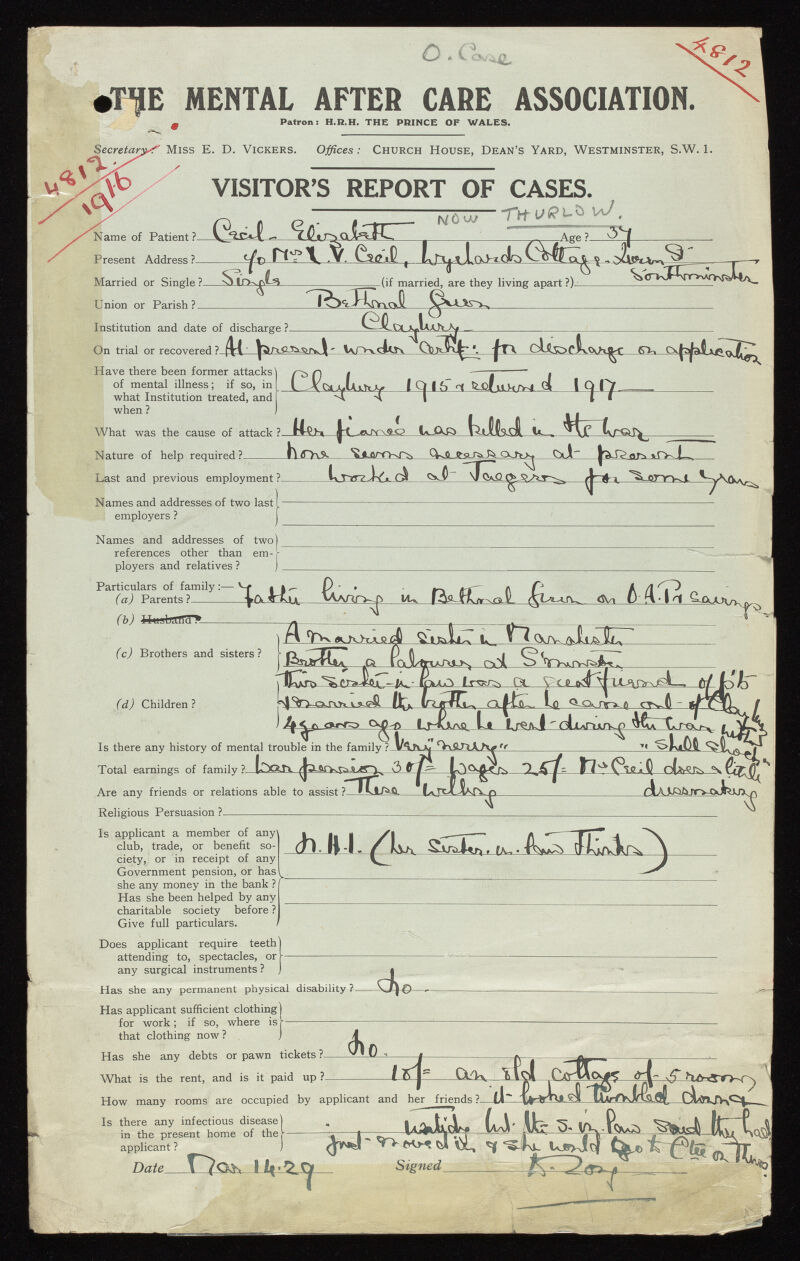 O. Case
4812
THE MENTAL AFTER CARE ASSOCIATION.
Patron: H.R.H. THE PRINCE OF WALES.
Secretary: MISS E. D. VICKERS. Offices: CHURCH HOUSE, DEAN'S YARD, WESTMINSTER, S.W. 1.
4812.
1916
VISITOR'S REPORT OF CASES.
NOW THURLOW.
Name of Patient? Cecil - Elizabeth Age? 37
Present Address? c/o Mrs V. Cecil, Wychards Cottage - Queen St
Southminster
Married or Single? Single (if married, are they living apart?)
Union or Parish? Bethnal Green
Institution and date of discharge? Claybury
On trial or recovered? At present under certif: for discharge on application
Have there been former attacks
of mental illness; if so, in
what Institution treated, and
when? Claybury 1915 & returned 1917
What was the cause of attack? Her fiancé was killed in the War
Nature of help required? None seems necessary at present
Last and previous employment? Worked at Jaegers for some years
Names and addresses of two last
employers?
Names and addresses of two
references other than em-
ployers and relatives?
Particulars of family:—
(a) Parents? Father living in Bethnal Green on O.A.P. & savings
(b) Husband?
(c) Brothers and sisters? A married sister in Manchester
Brother a labourer at S'minster
This sister-in-law was a great friend of pt's
(d) Children? & married the brother after he came out of Claybury
4 years ago where he went during the War with
"Shell Shock"
Is there any history of mental trouble in the family? Very "nervy"
Total earnings of family? War pension 30/= Wages 25/= Mrs Cecil does a little
dressmaking
Are any friends or relations able to assist? These willing
Religious Persuasion?
Is applicant a member of any
club, trade, or benefit so-
ciety, or in receipt of any
Government pension, or has
she any money in the bank?
Has she been helped by any
charitable society before?
Give full particulars. N.H.I. (her sister-in-law thinks)
Does applicant require teeth
attending to, spectacles, or
any surgical instruments?
Has she any permanent physical disability? No.
Has applicant sufficient clothing
for work; if so, where is
that clothing now?
Has she any debts or pawn tickets? No.
What is the rent, and is it paid up? 10/= an old cottage of 5 rooms
How many rooms are occupied by applicant and her friends? it looked tumbled down
Is there any infectious disease
in the present home of the
applicant? but the S. in law said they had
just moved in & she would go to Cttee on Thurs.
Date Mar 14.29 Signed